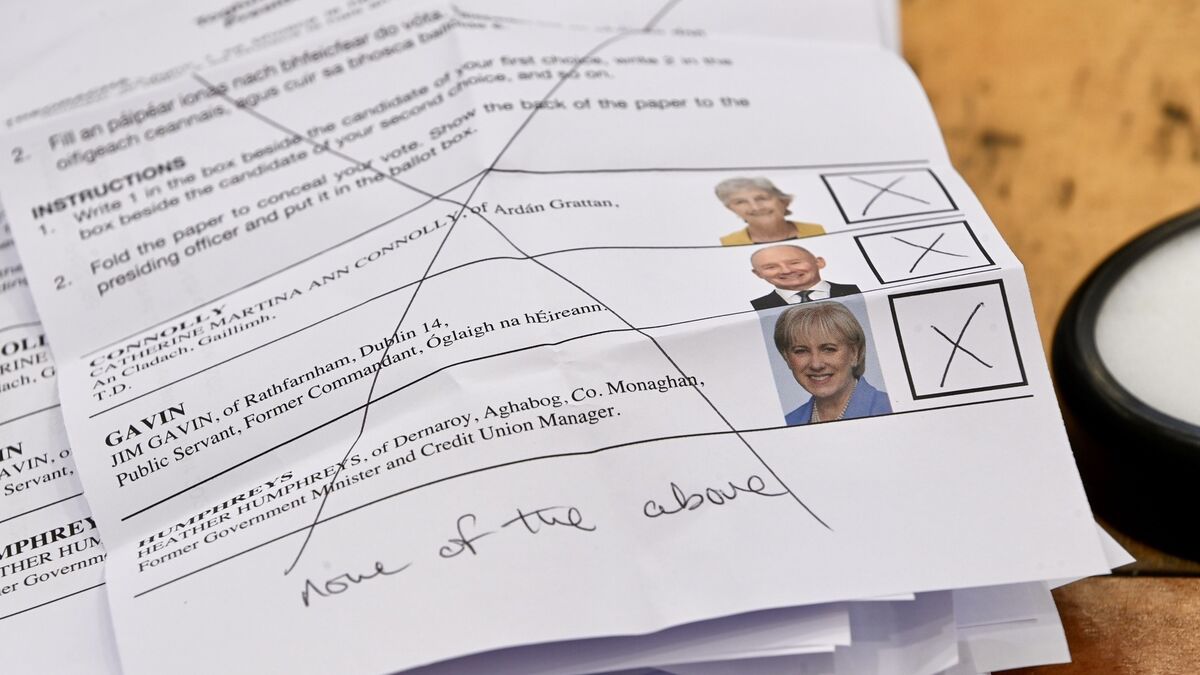 2. Fill an páipéar ionas nach bhfeicfear do vóta.
oifigeach ceannais, agus cuir sa bhosca
INSTRUCTIONS
1. Write 1 in the box beside the candidate of your first choice, write 2 in the
box beside the candidate of your second choice, and so on.
2. Fold the paper to conceal your vote. Show the back of the paper to the
presiding officer and put it in the ballot box.
CONNOLLY
CATHERINE MARTINA ANN CONNOLLY, of Ardán Grattan,
An Cladach, Gaillimh.
T.D.
GAVIN
JIM GAVIN, of Rathfarnham, Dublin 14,
Public Servant, Former Commandant, Óglaigh na hÉireann.
HUMPHREYS
HEATHER HUMPHREYS, of Dernaroy, Aghabog, Co. Monaghan,
Former Government Minister and Credit Union Manager.
none of the above